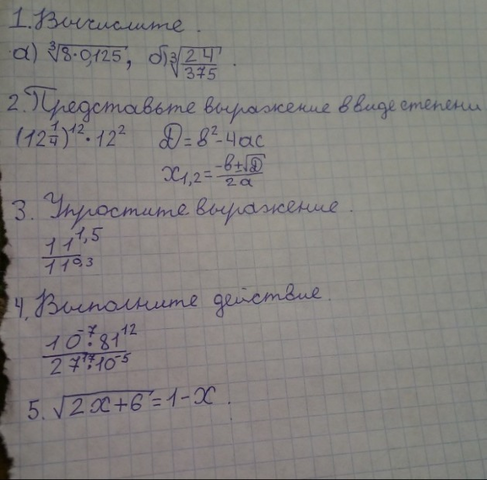 1. Вычислите.
а) ∛(8·0,125), б) ∛(24/375).
2. Представьте выражение в виде степени
(12^(1/4))^12 · 12^2   D = в² - 4ac
x₁,₂ = (-в ± √D)/2a
3. Упростите выражение.
11^1,5 / 11^0,3
4. Выполните действие.
10^-7 · 81^12 / 27^17 · 10^-5
5. √(2x+6) = 1-x.